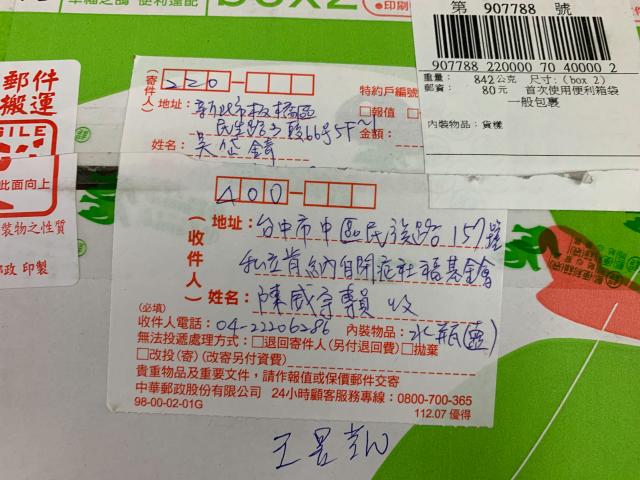 幸福之鴿 便利達配
box2
●印刷
第 907788 號
907788 220000 70 40000 2
重量： 842公克 尺寸：(box 2)
郵資： 80元 首次使用便利箱袋
一般包裹
內裝物品：貨樣
郵件
搬運
此面向上
裝物之性質
郵政 印製
(寄件人)
220
特約戶編號
地址：新北市板橋區
民生路2段66號5F~1
□報值
金額：
姓名：吳
400
(收件人)
地址：台中市中區民族路157號
私立肯納自閉症社福基金會
姓名：陳威宇專員 收
(必填)
收件人電話：04-22206286 內裝物品：水瓶(壺)
無法投遞處理方式：□退回寄件人(另付退回費)□拋棄
□改投(寄)(改寄另付資費)
貴重物品及重要文件，請作報值或保價郵件交寄
中華郵政股份有限公司 24小時顧客服務專線：0800-700-365
98-00-02-01G
112.07 優得
王昱凱